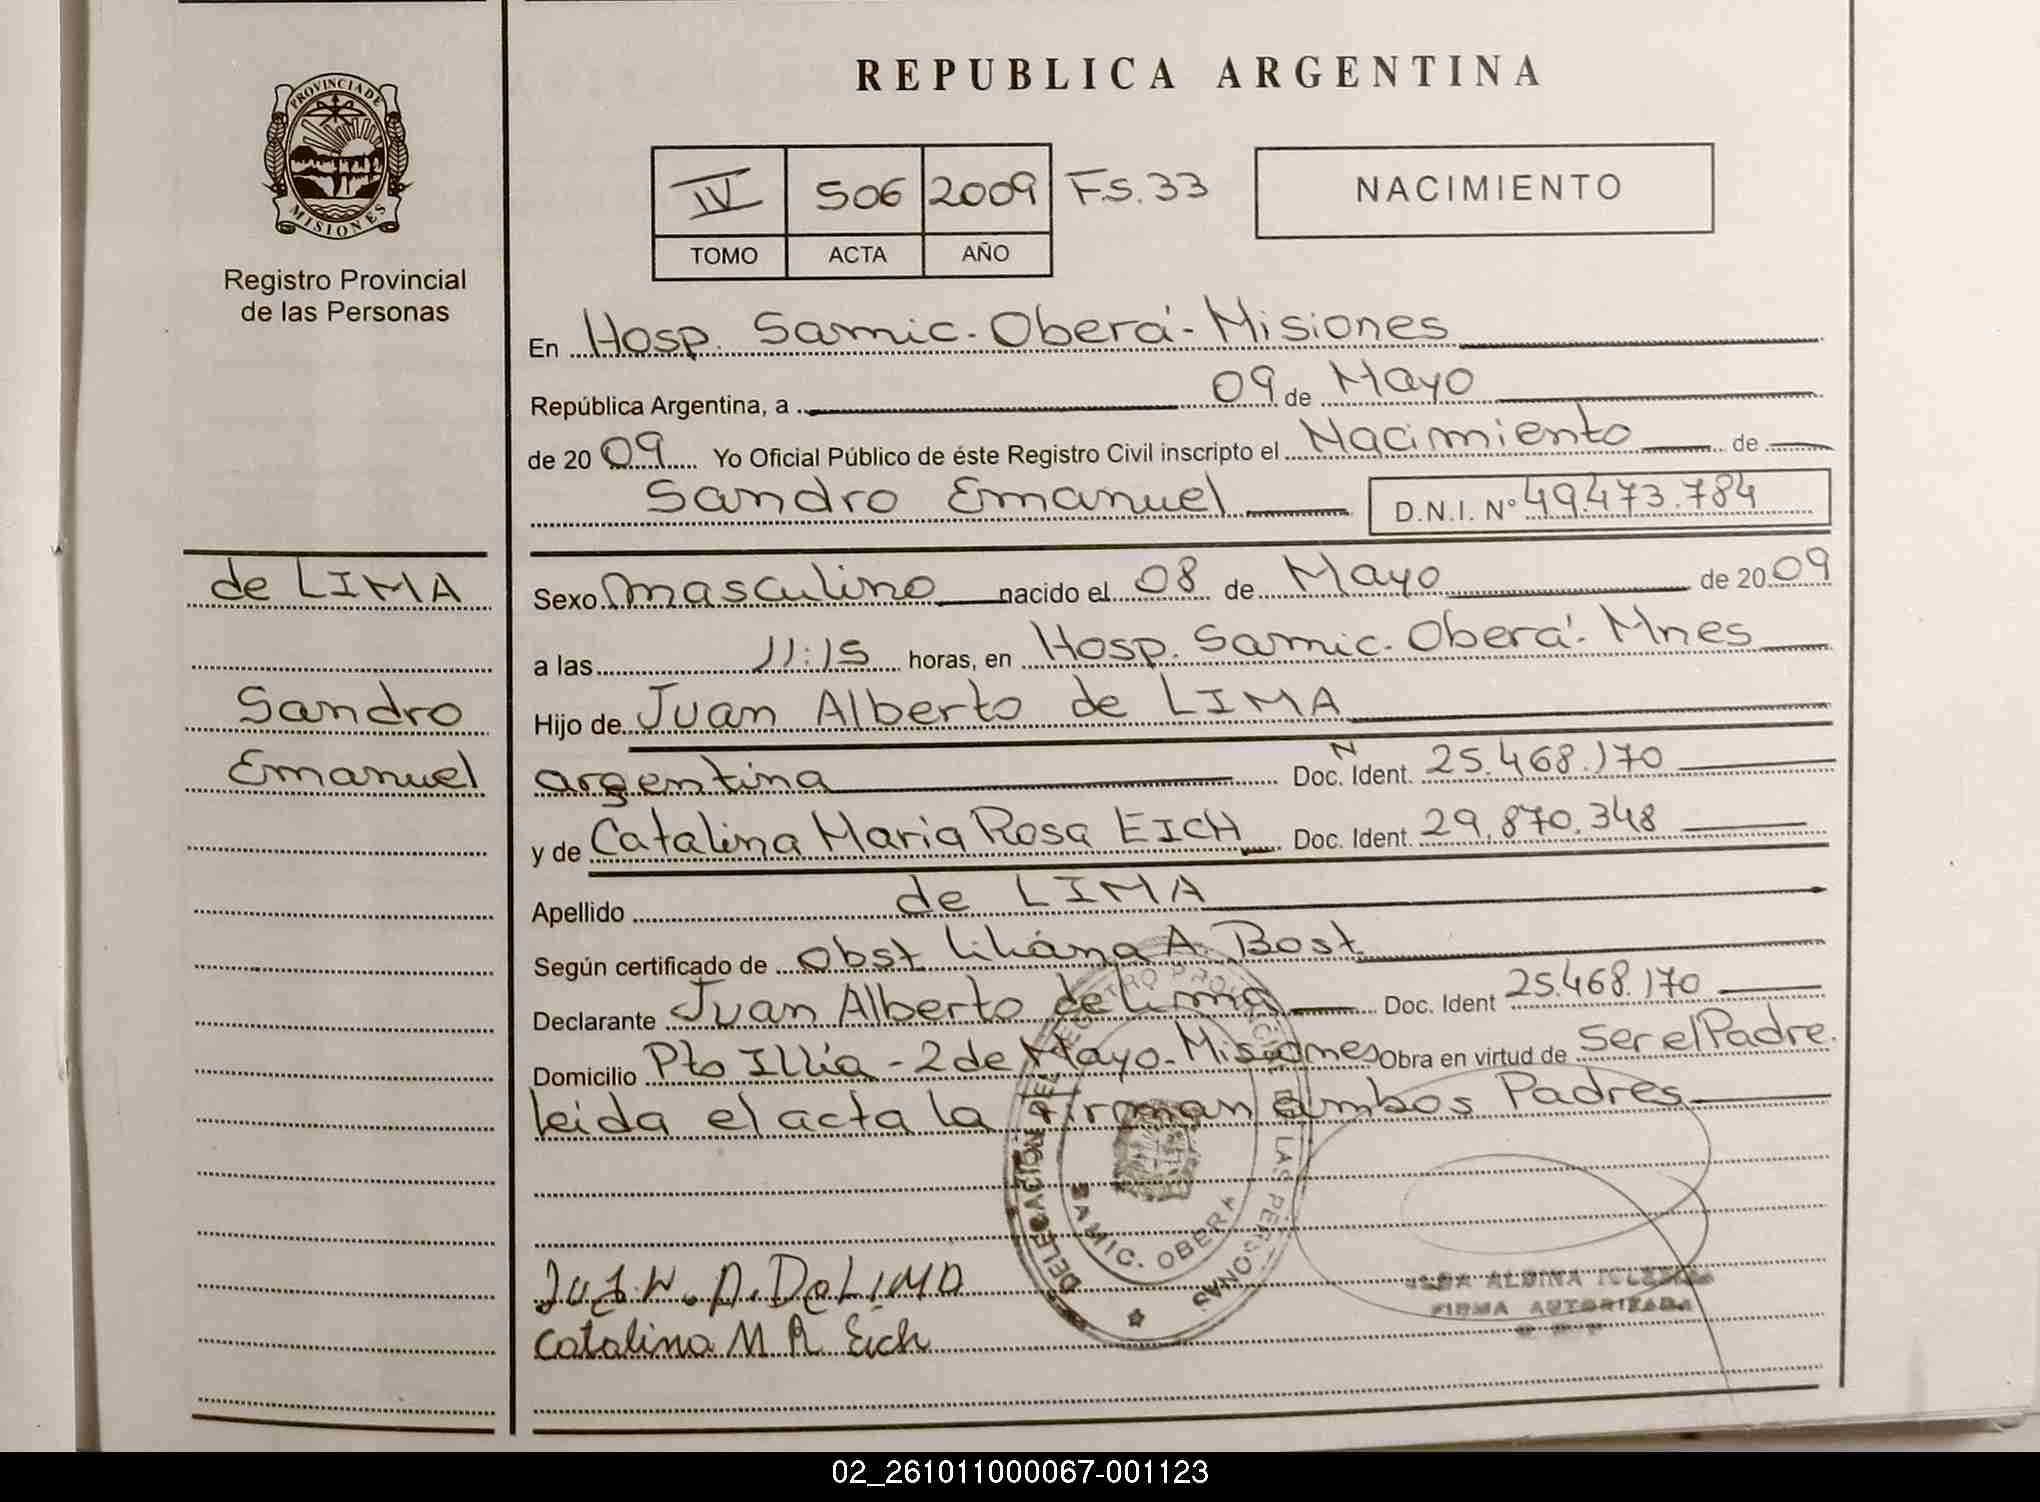 REPUBLICA ARGENTINA
PROVINCIA DE
MISIONES
Registro Provincial
de las Personas
IV 506 2009 FS. 33
TOMO ACTA AÑO
NACIMIENTO
En Hosp. Samic. Oberá - Misiones
República Argentina, a 09 de Mayo
de 2009 Yo Oficial Público de éste Registro Civil inscripto el Nacimiento de
Sandro Emanuel D.N.I. Nº 49.473.784
de LIMA
Sandro
Emanuel
Sexo masculino nacido el 08 de Mayo de 2009
a las 11:15 horas, en Hosp. Samic. Oberá. Mnes
Hijo de Juan Alberto de LIMA
argentina Doc. N Ident. 25.468.170
y de Catalina Maria Rosa EICH Doc. Ident. 29.870.348
Apellido de LIMA
Según certificado de Obst Liliana A. Bost
Declarante Juan Alberto de Lima Doc. Ident 25.468.170
Domicilio Pto Illia - 2 de Mayo - Misiones Obra en virtud de ser el Padre.
leida el acta la firman ambos Padres
DELEGACION DEL REGISTRO PROVINCIAL DE LAS PERSONAS
SAMIC. OBERA
Juan. A. De LIMA
Catalina M R Eich
ALBINA
FIRMA AUTORIZADA
02_261011000067-001123